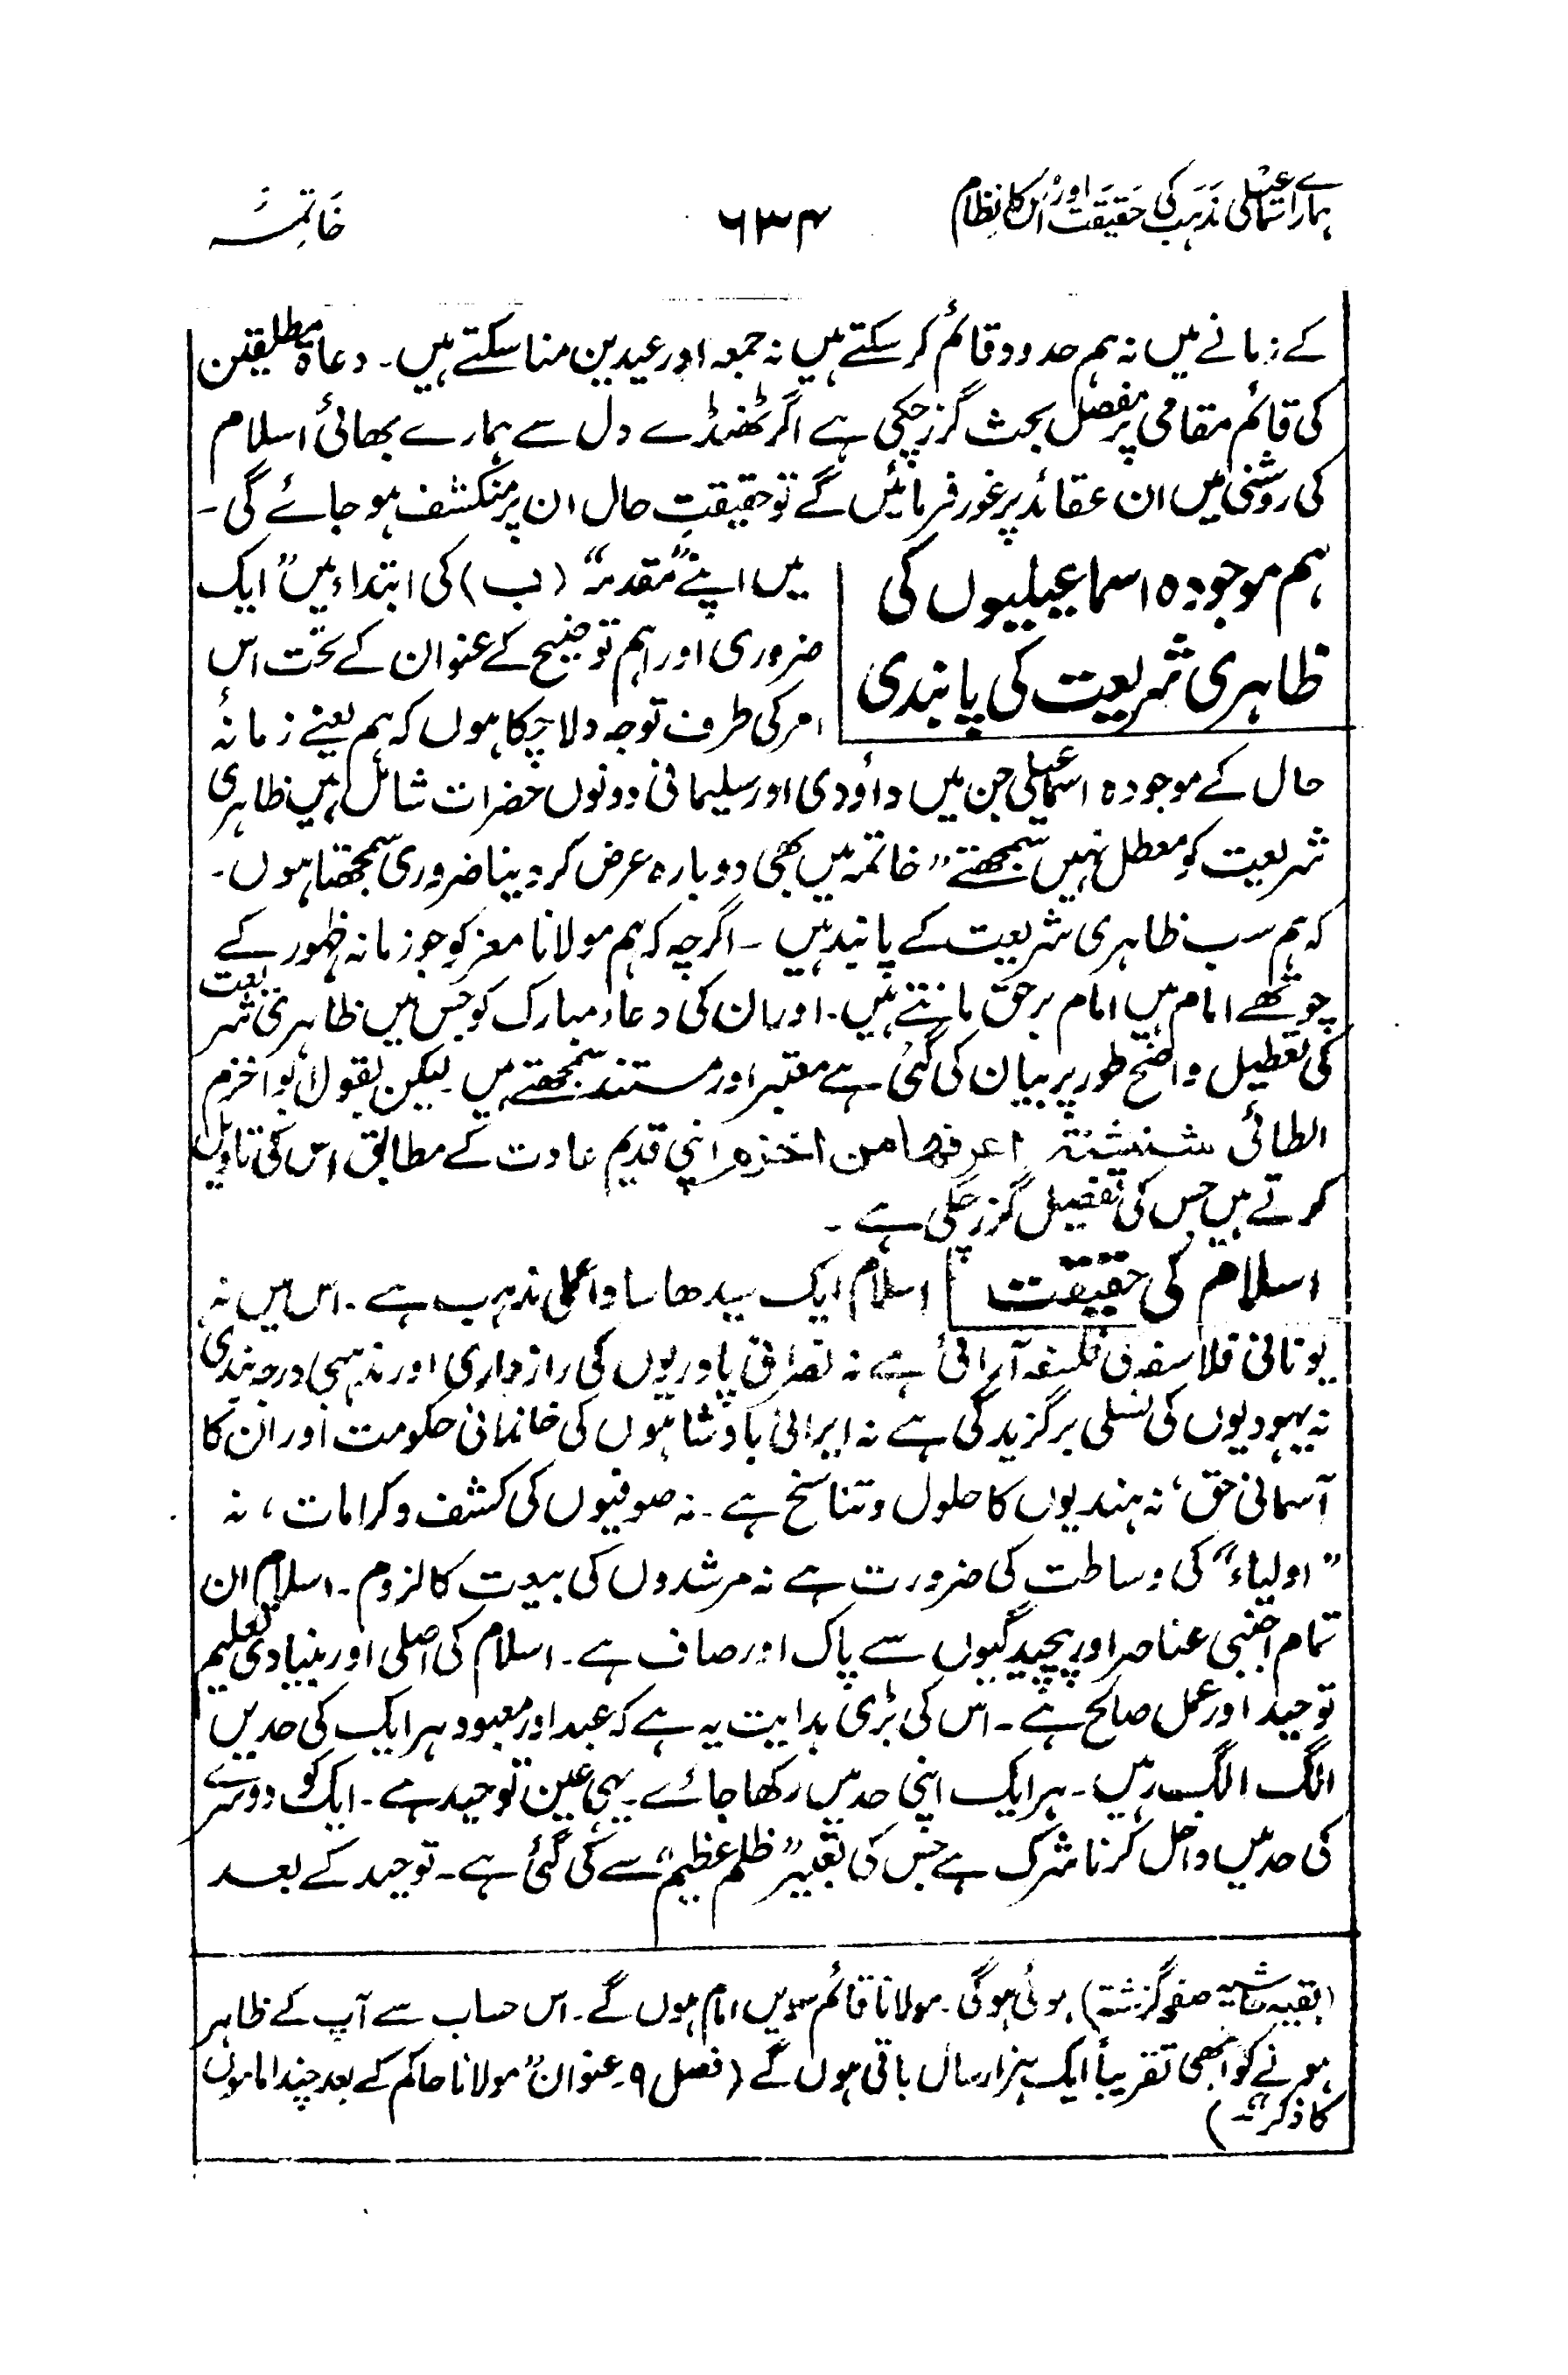 ہمارے اسمٰعیلی مذہب کی حقیقت اور اُس کا نظام
۶۳۴
خاتمہ
کے زمانے میں نہ ہم حدود قائم کر سکتے ہیں نہ جمعہ اور عیدین منا سکتے ہیں۔ دعاۃ مطلقین
کی قائم مقامی پر مفصل بحث گزر چکی ہے اگر ٹھنڈے دل سے ہمارے بھائی اسلام
کی روشنی میں ان عقائد پر غور فرمائیں گے تو حقیقتِ حال ان پر منکشف ہو جائے گی۔
ہم موجودہ اسماعیلیوں کی
ظاہری شریعت کی پابندی
میں اپنے ”مقدمہ“ (ب) کی ابتداء میں ”ایک
ضروری اور اہم توضیح کے عنوان کے تحت اس
امر کی طرف توجہ دلا چکا ہوں کہ ہم یعنے زمانۂ
حال کے موجودہ اسمٰعیلی جن میں داؤدی اور سلیمانی دونوں حضرات شامل ہیں ظاہری
شریعت کو معطل نہیں سمجھتے“ خاتمہ میں بھی دوبارہ عرض کر دینا ضروری سمجھتا ہوں۔
کہ ہم سب ظاہری شریعت کے پابند ہیں ۔ اگرچہ کہ ہم مولانا معز کو جو زمانہ ظہور کے
چوتھے امام ہیں امام برحق مانتے ہیں۔ اور ان کی دعاء مبارک کو جس میں ظاہری شریعت
کی تعطیل واضح طور پر بیان کی گئی ہے معتبر اور مستند سمجھتے ہیں۔ لیکن بقول ابو اخزم
الطائی شنشنۃ اعرفھا من اخزم اپنی قدیم عادت کے مطابق اس کی تاویل
کرتے ہیں جس کی تفصیل گزر چکی ہے ۔
اسلام کی حقیقت
اسلام ایک سیدھا سادا عملی مذہب ہے ۔ اس میں نہ
یونانی فلاسفہ کی فلسفہ آرائی ہے نہ نصرانی پادریوں کی رازداری اور مذہبی درجہ بندی
نہ یہودیوں کی نسلی برگزیدگی ہے نہ ایرانی بادشاہوں کی خاندانی حکومت اور ان کا
آسمانی حق، نہ ہندیوں کا حلول و تناسخ ہے ۔ نہ صوفیوں کی کشف و کرامات ، نہ
”اولیاء“ کی وساطت کی ضرورت ہے نہ مرشدوں کی بیعت کا لزوم ۔ اسلام ان
تمام اجنبی عناصر اور پیچیدگیوں سے پاک اور صاف ہے ۔ اسلام کی اصلی اور بنیادی تعلیم
توحید اور عمل صالح ہے ۔ اس کی بڑی ہدایت یہ ہے کہ عبد اور معبود ہر ایک کی حدیں
الگ الگ رہیں ۔ ہر ایک اپنی حد میں رکھا جائے۔ یہی عین توحید ہے ۔ ایک کو دوسرے
کی حد میں داخل کرنا شرک ہے جس کی تعبیر ”ظلم عظیم“ سے کی گئی ہے ۔ توحید کے بعد
(بقیہ حاشیہ صفحہ گزشتہ) ہوئی ہوگی ۔ مولانا قائم سویں امام ہوں گے ۔ اس حساب سے آپ کے ظاہر
ہونے کو ابھی تقریباً ایک ہزار سال باقی ہوں گے (فصل ۹۔ عنوان ”مولانا حاکم کے بعد چند اماموں
کا ذکر“۔)